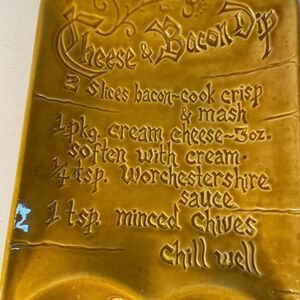 Cheese & Bacon Dip
2 slices bacon~cook crisp
& mash
1 pkg. cream cheese~3oz.
soften with cream.
1/4 tsp. Worchestershire
sauce
1 tsp. minced chives
chill well